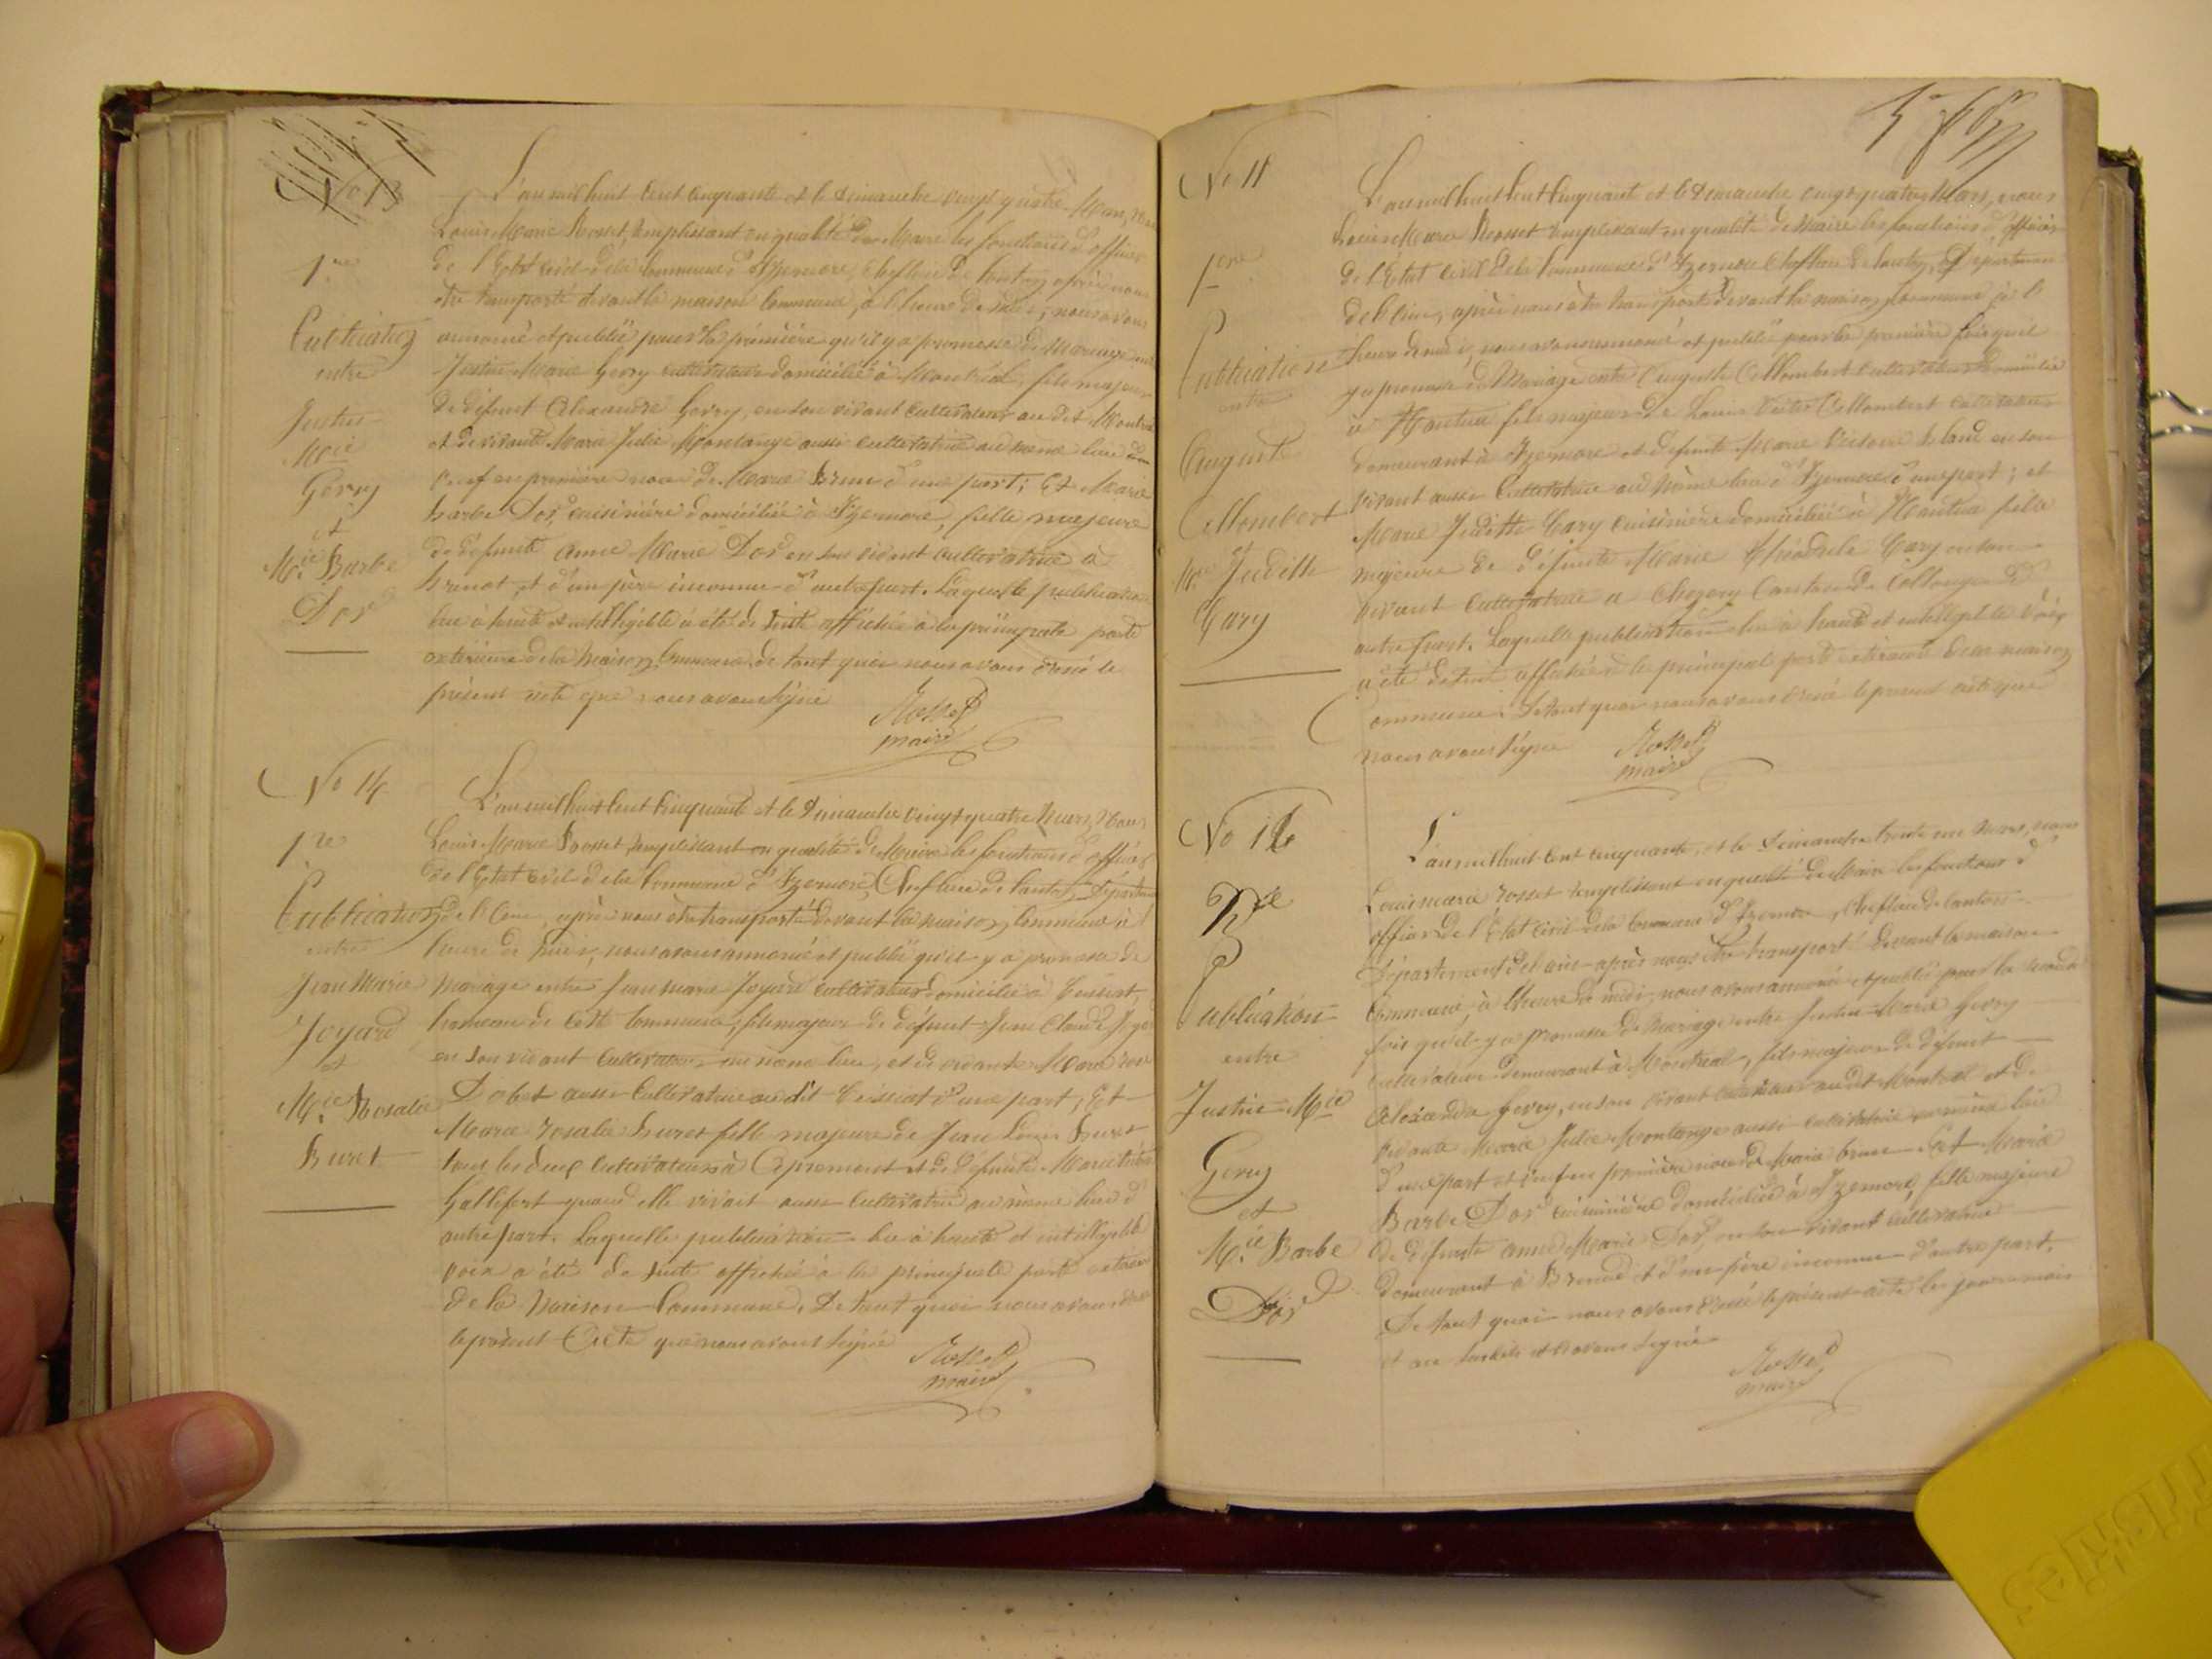 No 13
1re
Publication
entre
Justin
Mie
Gerry
et
Mie Barbe
Dor
L'an mil huit cent cinquante et le dimanche vingt quatre Mars, nous
Louis Marie Rosset, remplissant en qualité de Maire les fonctions d'officier
de l'Etat civil de la Commune d'Izernore, Chef lieu de Canton après nous
être transporté devant la maison Commune, à l'heure de midi, nous avons
annoncé et publié pour la première qu'il y a promesse de Mariage entre
Justin Marie Gerry cultivateur domicilié à Montréal, fils majeur
de défunt Alexandre Gerry, en son vivant cultivateur au dit Montréal
et de vivante Marie Julie Montange aussi cultivatrice au même lieu
veuf en première noce de Marie Brun d'une part; Et Marie
Barbe Dor, cuisinière domiciliée à Izernore, fille majeure
de défunte Anne Marie Dor en son vivant cultivatrice à
Brenod, et d'un père inconnu d'autre part. Laquelle publication
lue à haute et intelligible a été de suite affichée à la principale porte
extérieure de la Maison Commune de tout quoi nous avons dressé le
présent acte que nous avons signé
Rosset
maire
No 14
1re
Publication
entre
Jean Marie
Joyard
et
Mie Rosalie
Buret
L'an mil huit cent cinquante et le dimanche vingt quatre Mars, nous
Louis Marie Rosset, remplissant en qualité de Maire les fonctions d'officier
de l'Etat civil de la Commune d'Izernore, Chef lieu de Canton, Départem
de l'Ain, après nous être transporté devant la maison Commune à l
heure de midi, nous avons annoncé et publié qu'il y a promesse de
Mariage entre Jean Marie Joyard cultivateur domicilié à Ceissiat,
hameau de cette Commune, fils majeur de défunt Jean Claude Joyard
en son vivant cultivateur au même lieu, et de vivante Marie
Dobet aussi cultivatrice au dit Ceissiat d'une part, Et
Marie Rosalie Buret fille majeure de Jean Louis Buret
tous les deux cultivateurs à Apremont et de défunte Marie
Gallefort quand elle vivait aussi cultivatrice au même lieu d'
autre part. Laquelle publication lue à haute et intelligible
voix a été de suite affichée à la principale porte extérieure
de la Maison Commune. De tout quoi nous avons dressé
le présent Acte que nous avons signé
Rosset
maire
No 15
1ere
Publication
entre
Auguste
Allombert
Mie Judith
Cary
L'an mil huit cent cinquant et le dimanche vingt quatre Mars, nous
Louis Marie Rosset remplissant en qualité de Maire les fonctions d'officier
de l'État civil de la Commune d'Izernore Chef lieu de Canton, Département
de l'Ain, après nous être transporté devant la maison Commune à l
heure de midi, nous avons annoncé et publié pour la première fois qu'il
y a promesse de Mariage entre Auguste Allombert cultivateur domicilié
à Nantua fils majeur de Louis Victor Allombert cultivateur
demeurant à Izernore et défunte Marie Victoire en son
vivant aussi cultivatrice au même lieu d'Izernore d'une part; et
Marie Judith Cary cuisinière domiciliée à Nantua fille
majeure de défunte Marie Théodule Cary en son
vivant cultivatrice à Chezery Canton de Collonges d'
autre part. Laquelle publication lue à haute et intelligible voix
a été de suite affichée à la principal porte extérieure de la maison
Commune. De tout quoi nous avons dressé le présent acte que
nous avons signé
Rosset
maire
No 16
2de
Publication
entre
Justin Mie
Gerry
et
Mie Barbe
Dor
L'an mil huit cent cinquante, et le dimanche trente un Mars, nous
Louis marie Rosset remplissant en qualité de Maire les fonctions d'
officier de l'État civil de la Commune d'Izernore, Chef lieu de Canton
Département de l'ain après nous être transporté devant la maison
Commune, à l'heure de midi, nous avons annoncé et publié pour la seconde
fois qu'il y a promesse de Mariage entre Justin Marie Gerry
cultivateur demeurant à Montréal, fils majeur de défunt
Alexandre Gerry, en son vivant cultivateur au dit Montréal et de
vivante Marie Julie Montange aussi cultivatrice au même lieu
d'une part et veuf en première noce de Marie brun Et Marie
Barbe Dor cuisinière domiciliée à Izernore, fille majeure
de défunte anne Marie Dor, en son vivant cultivatrice
demeurant à Brenod et d'un père inconnu d'autre part.
De tout quoi nous avons dressé le présent acte les jour mois
et an susdits et avons signé
Rosset
maire